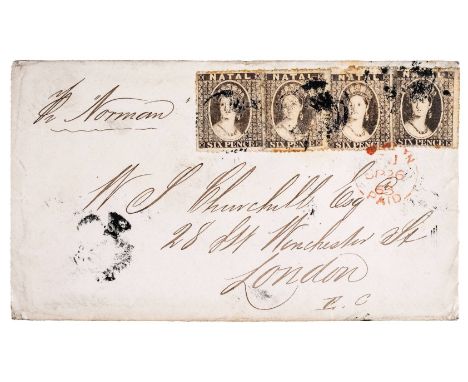 NATAL NATAL NATAL NATAL
SIX PENCE SIX PENCE SIX PENCE SIX PENCE
Norman
PAID
W J Churchill Esq
28 Winchester St
London
E. C